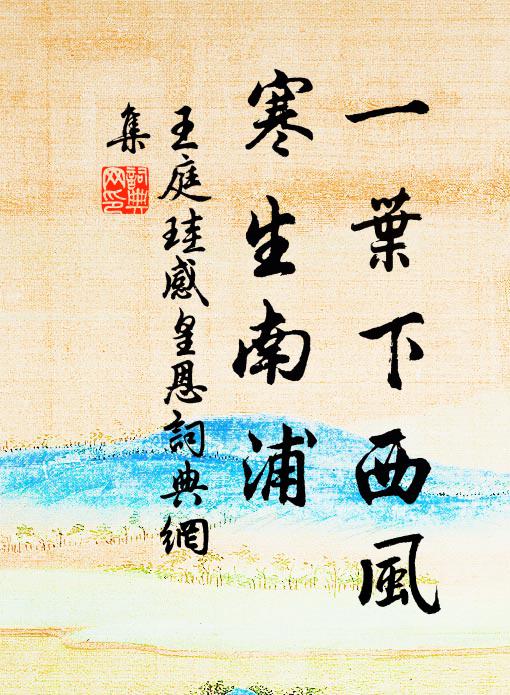 一葉下西風
寒生南浦
王庭珪感皇恩詞典網
集
詞典網印